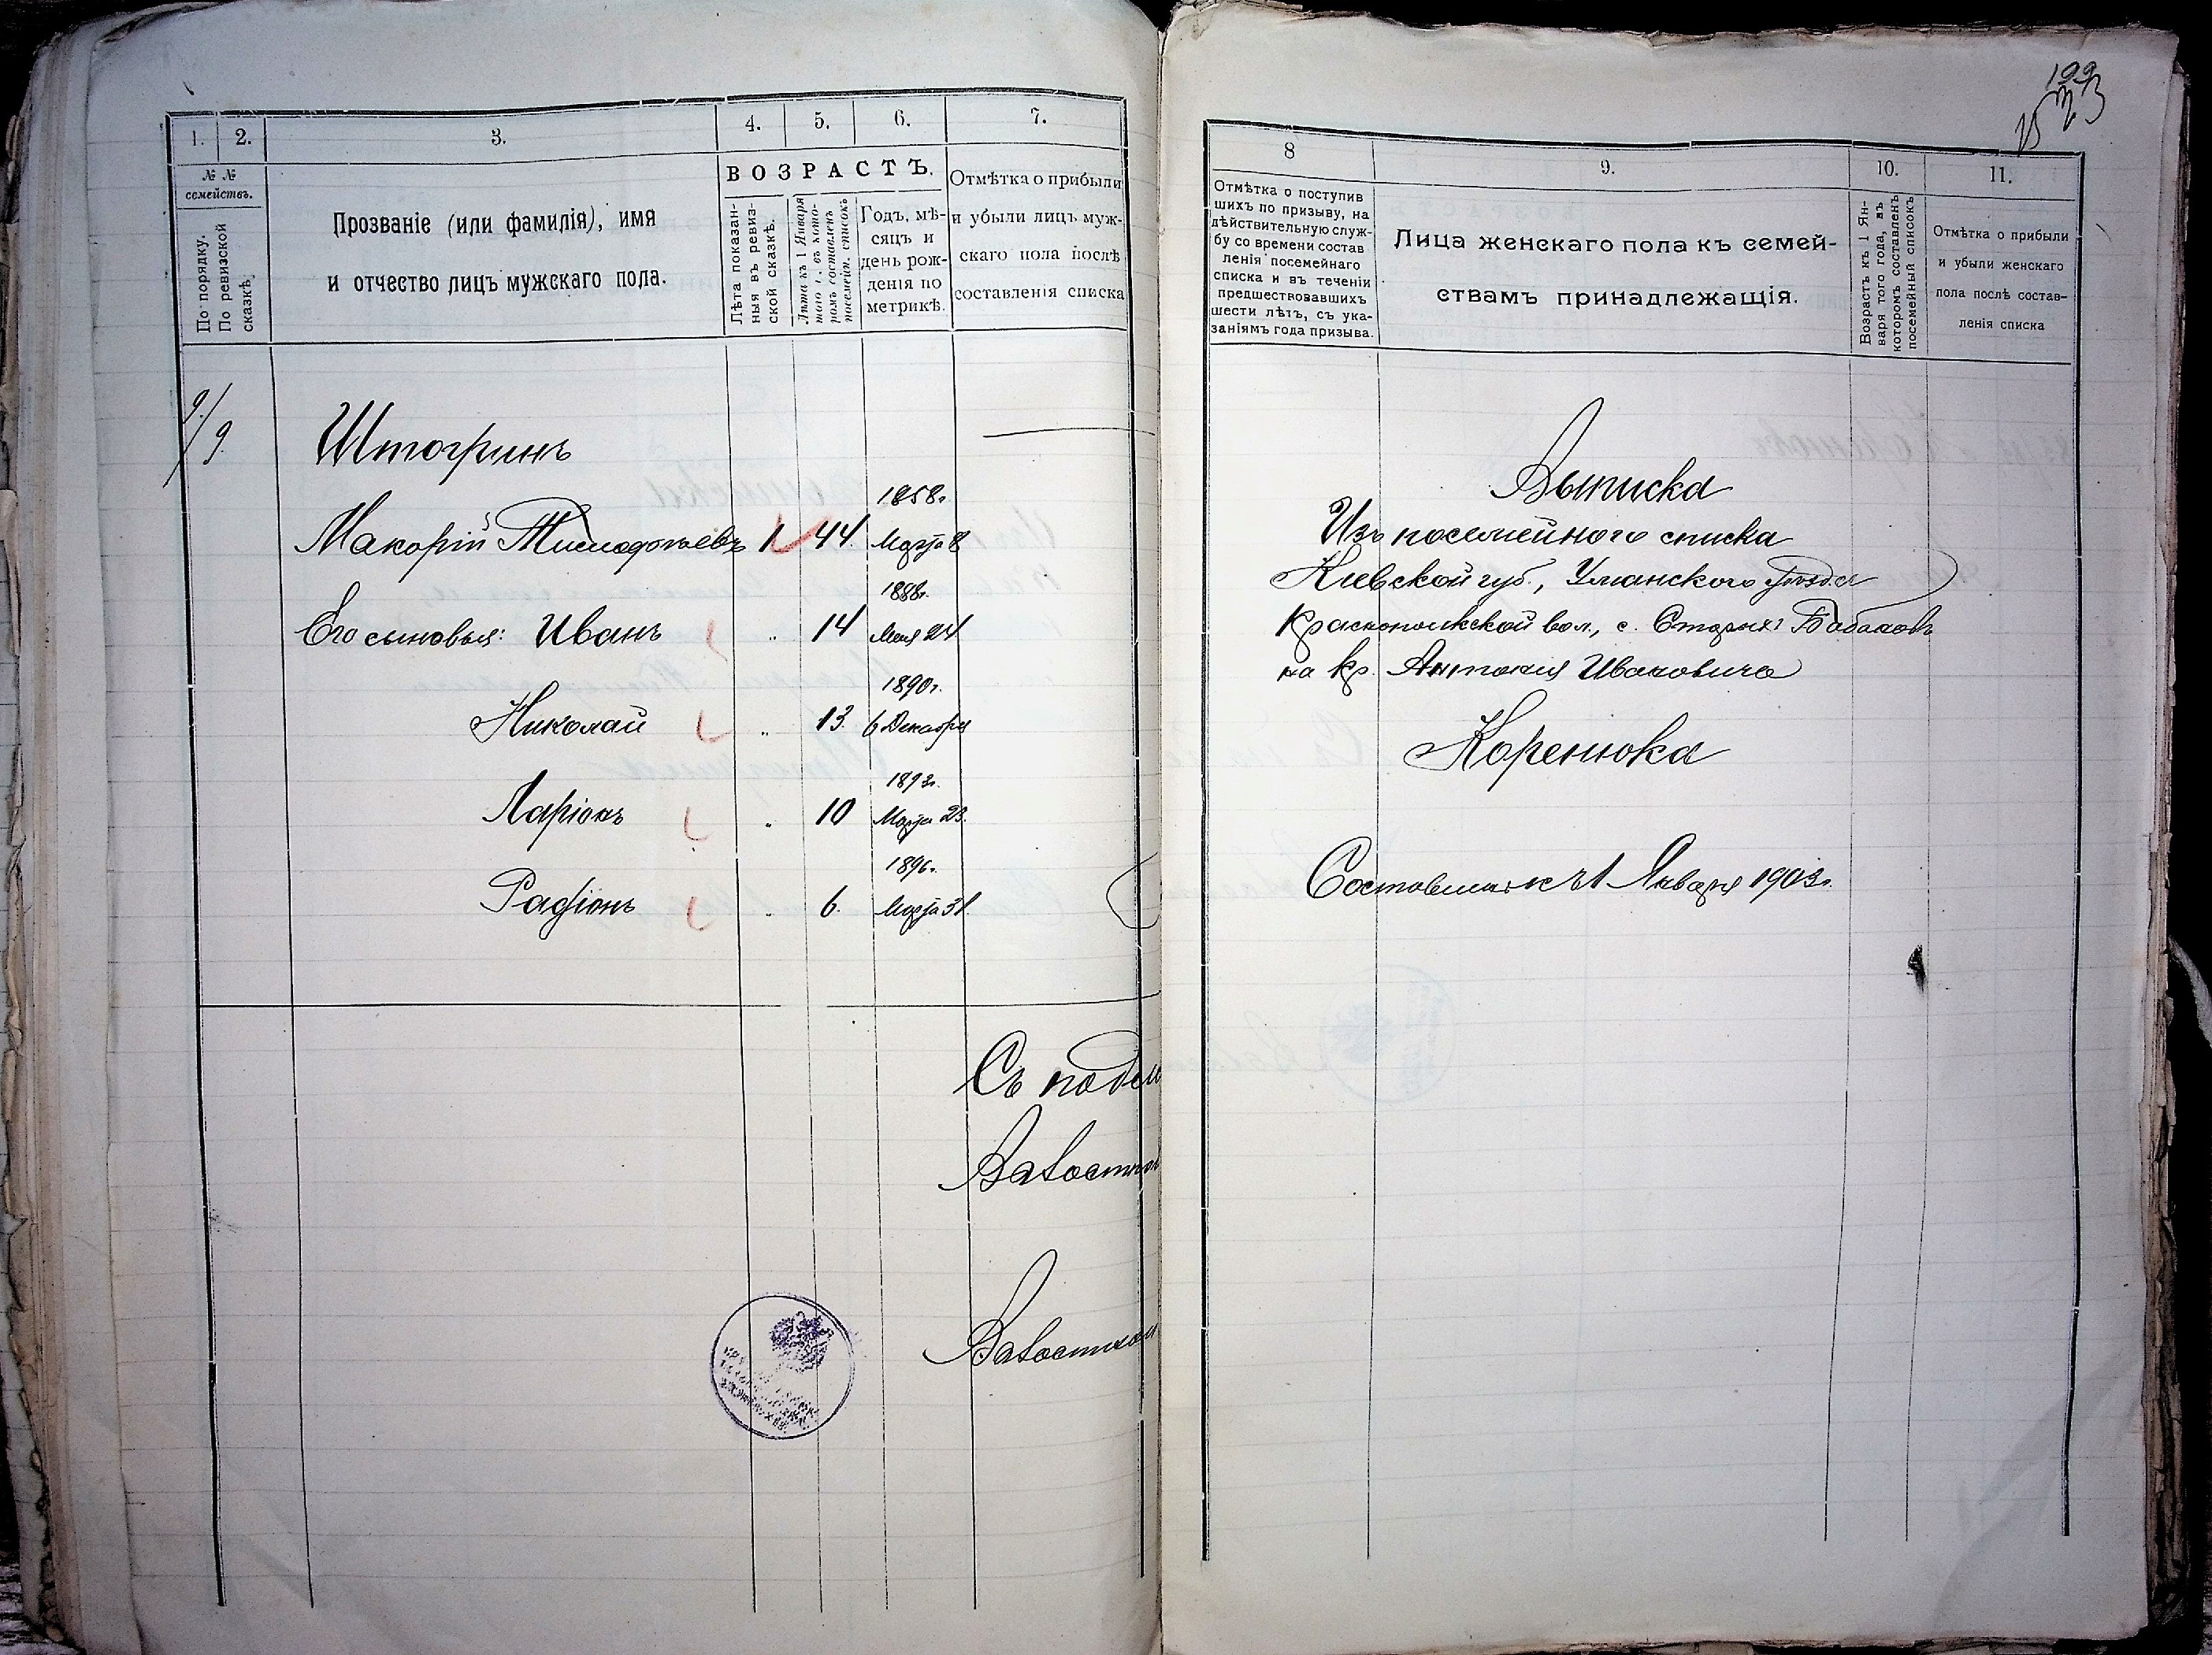 1.
2.
3.
4.
5.
6.
7.
№ №
семействъ.
По порядку.
По ревизской
сказкѣ.
Прозваніе (или фамилія), имя
и отчество лицъ мужскаго пола.
ВОЗРАСТЪ.
Лѣта показан-
ныя въ ревиз-
ской сказкѣ.
Лѣта къ 1 Января
того г., въ кото-
ромъ составленъ
посемейн. списокъ
Годъ, мѣ-
сяцъ и
день рож-
денія по
метрикѣ.
Отмѣтка о прибыли
и убыли лицъ муж-
скаго пола послѣ
составленія списка
9/9
Штогринъ
1858г.
Макорій Тимофѣевъ 1 44 Марта 8
1888г.
Его сыновья: Иванъ " 14 Мая 24
1890г.
Николай " 13. 6 Декабря
1893г.
Ларіонъ " 10 Марта 23.
1896г.
Радіонъ " 6. Марта 31.
Съ подл
Волостн
Волостном
199
8
9.
10.
11.
Отмѣтка о поступив
шихъ по призыву, на
дѣйствительную служ-
бу со времени состав
ленія посемейнаго
списка и въ теченіи
предшествовавшихъ
шести лѣтъ, съ ука-
заніямъ года призыва.
Лица женскаго пола къ семей-
ствамъ принадлежащія.
Возрастъ къ 1 Ян-
варя того года, въ
которомъ составленъ
посемейный списокъ
Отмѣтка о прибыли
и убыли женскаго
пола послѣ состав-
ленія списка
Выписка
Изъ посемейного списка
Кіевской губ., Уманского уѣзда
Краснополкской вол., с. Старыхъ Бабановъ
на кр. Антонія Ивановича
Коренюка
Составленъ къ 1 Января 1903г.